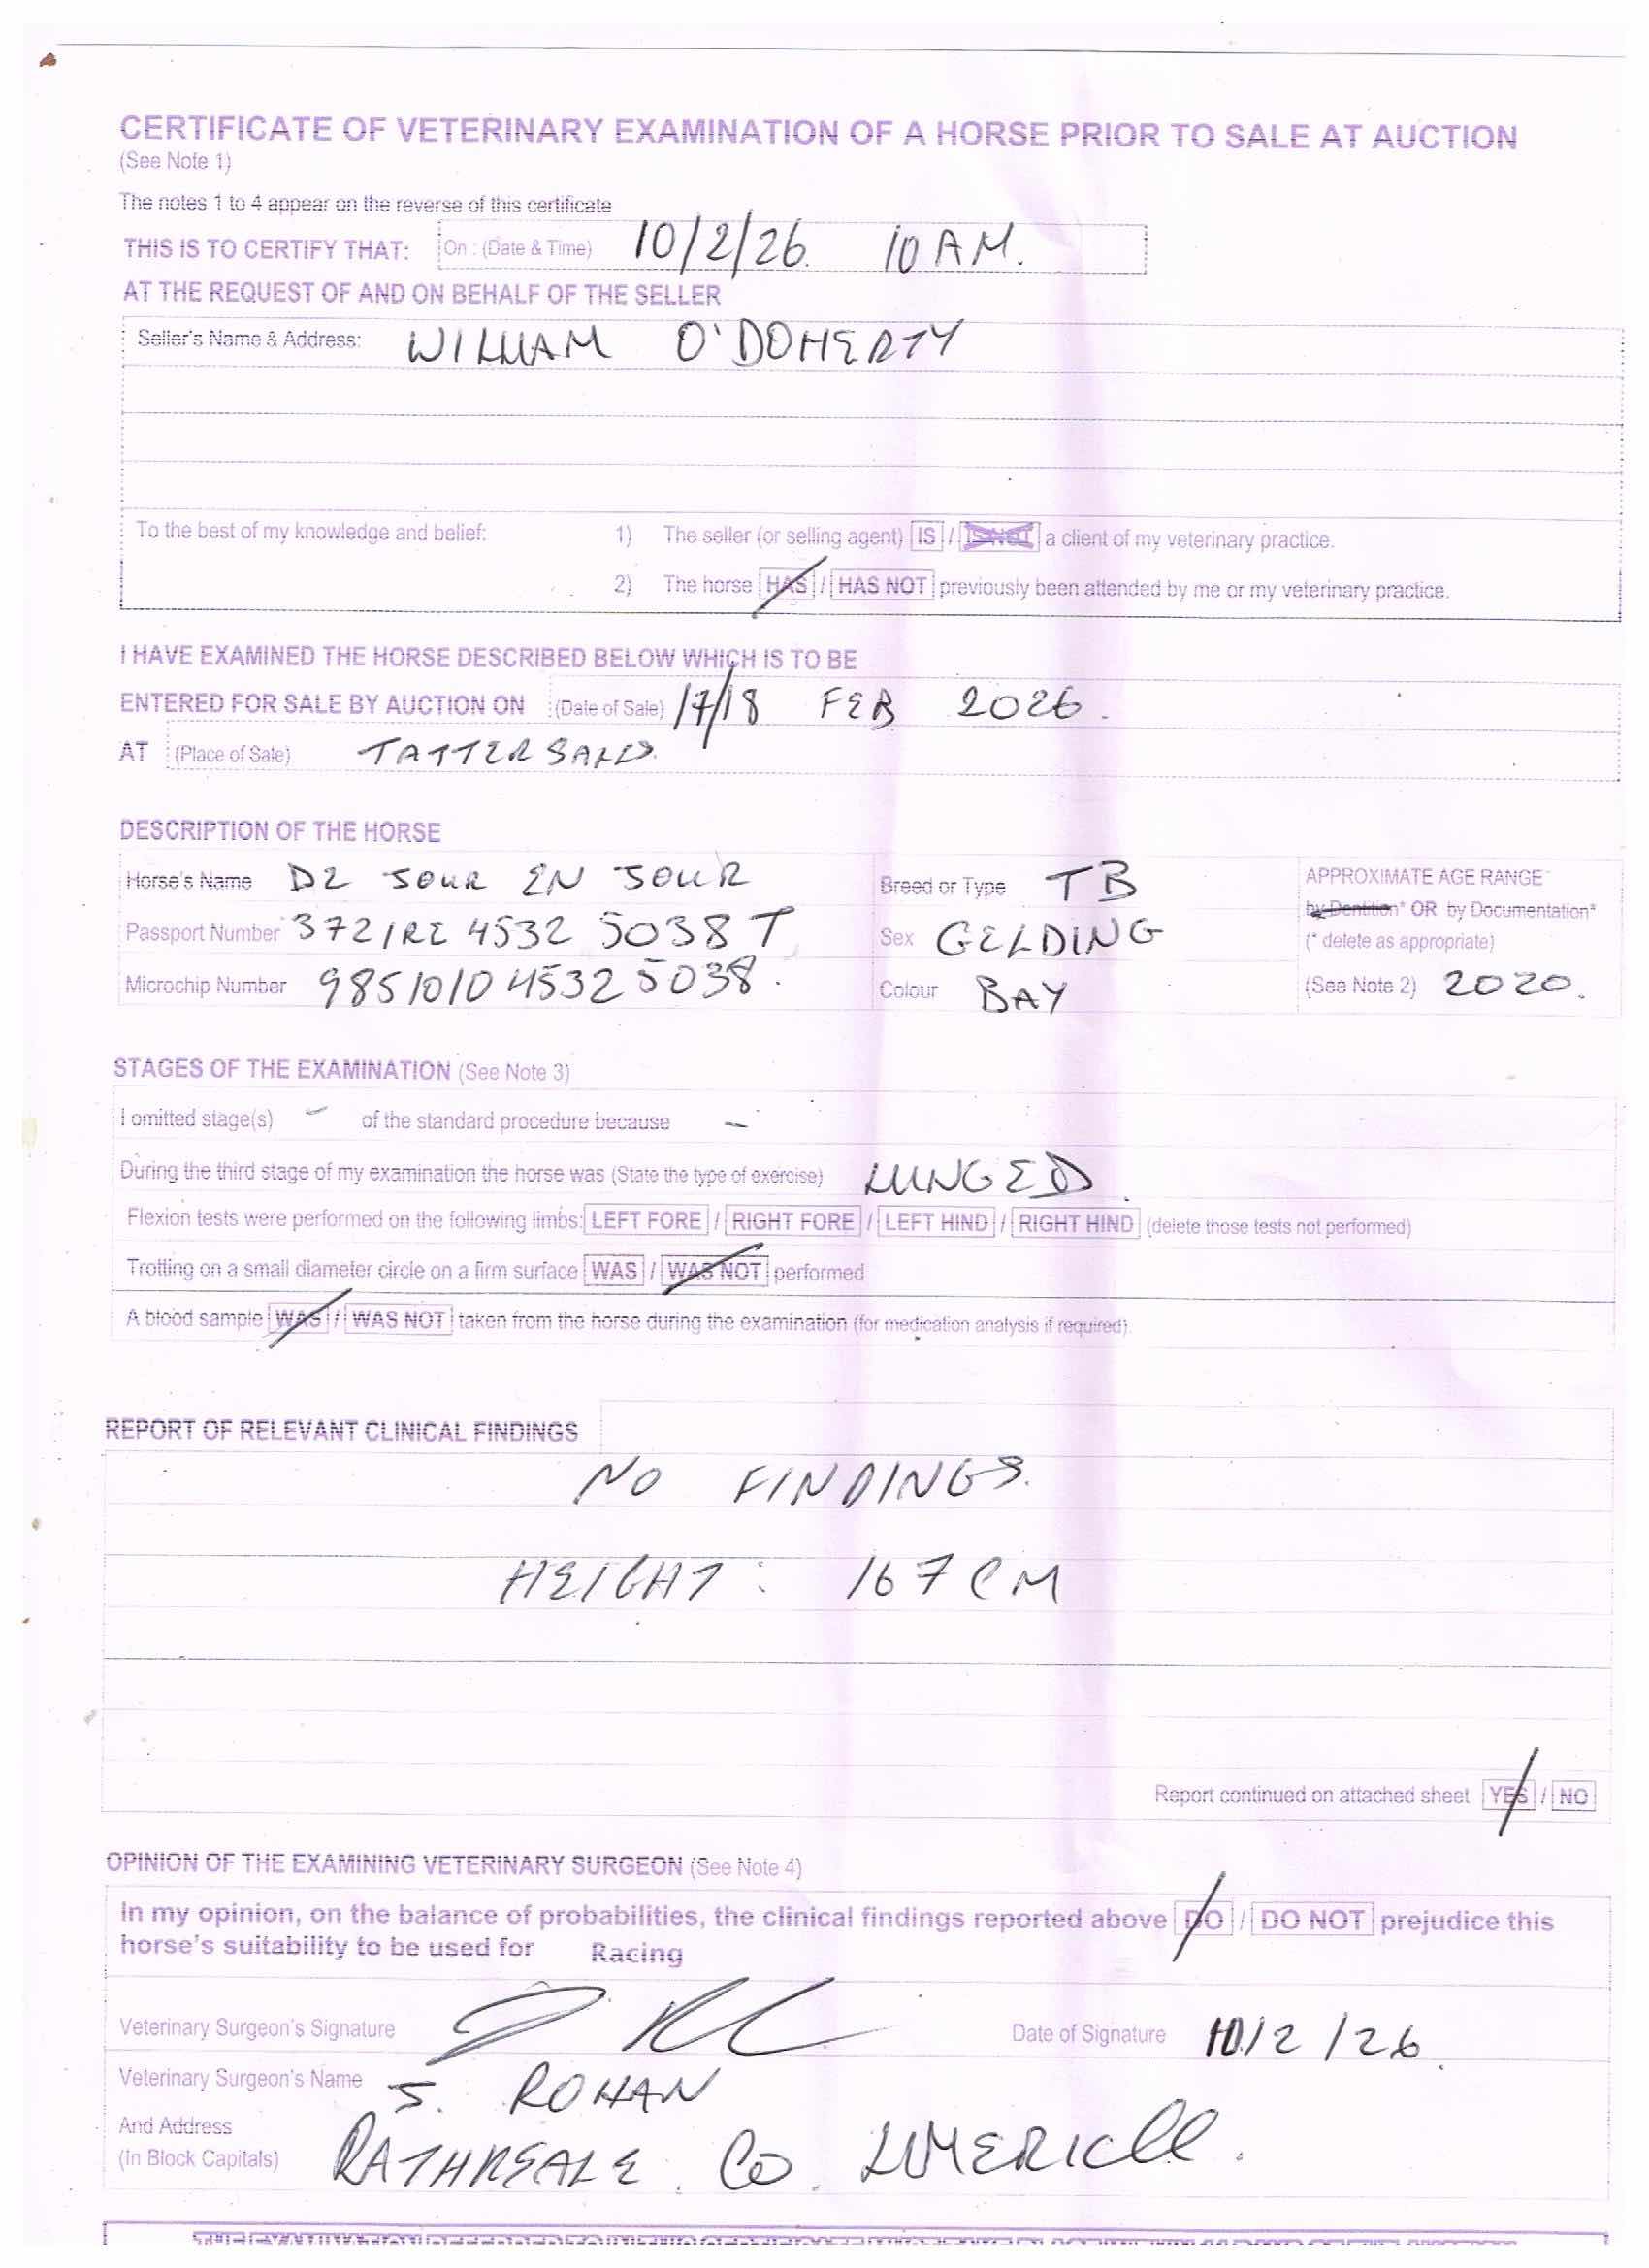 CERTIFICATE OF VETERINARY EXAMINATION OF A HORSE PRIOR TO SALE AT AUCTION
(See Note 1)
The notes 1 to 4 appear on the reverse of this certificate
THIS IS TO CERTIFY THAT: On : (Date & Time) 10/2/26. 10 AM.
AT THE REQUEST OF AND ON BEHALF OF THE SELLER
Seller's Name & Address: WILLIAM O'DOHERTY
To the best of my knowledge and belief: 1) The seller (or selling agent) IS / IS NOT a client of my veterinary practice.
2) The horse HAS / HAS NOT previously been attended by me or my veterinary practice.
I HAVE EXAMINED THE HORSE DESCRIBED BELOW WHICH IS TO BE
ENTERED FOR SALE BY AUCTION ON (Date of Sale) 17/18 FEB 2026.
AT (Place of Sale) TATTERSALLS.
DESCRIPTION OF THE HORSE
Horse's Name DE JOUR EN JOUR Breed or Type TB APPROXIMATE AGE RANGE
Passport Number 372/RE 4532 5038 T Sex GELDING by Dentition* OR by Documentation*
(* delete as appropriate)
Microchip Number 985101045325038. Colour BAY (See Note 2) 2020.
STAGES OF THE EXAMINATION (See Note 3)
I omitted stage(s) – of the standard procedure because –
During the third stage of my examination the horse was (State the type of exercise) LUNGED.
Flexion tests were performed on the following limbs: LEFT FORE / RIGHT FORE / LEFT HIND / RIGHT HIND (delete those tests not performed)
Trotting on a small diameter circle on a firm surface WAS / WAS NOT performed
A blood sample WAS / WAS NOT taken from the horse during the examination (for medication analysis if required).
REPORT OF RELEVANT CLINICAL FINDINGS
NO FINDINGS.
HEIGHT: 167 CM
Report continued on attached sheet YES / NO
OPINION OF THE EXAMINING VETERINARY SURGEON (See Note 4)
In my opinion, on the balance of probabilities, the clinical findings reported above DO / DO NOT prejudice this
horse's suitability to be used for Racing
Veterinary Surgeon's Signature Date of Signature 10/2/26.
Veterinary Surgeon's Name J. ROHAN
And Address
(In Block Capitals) RATHKEALE. Co. LIMERICK.